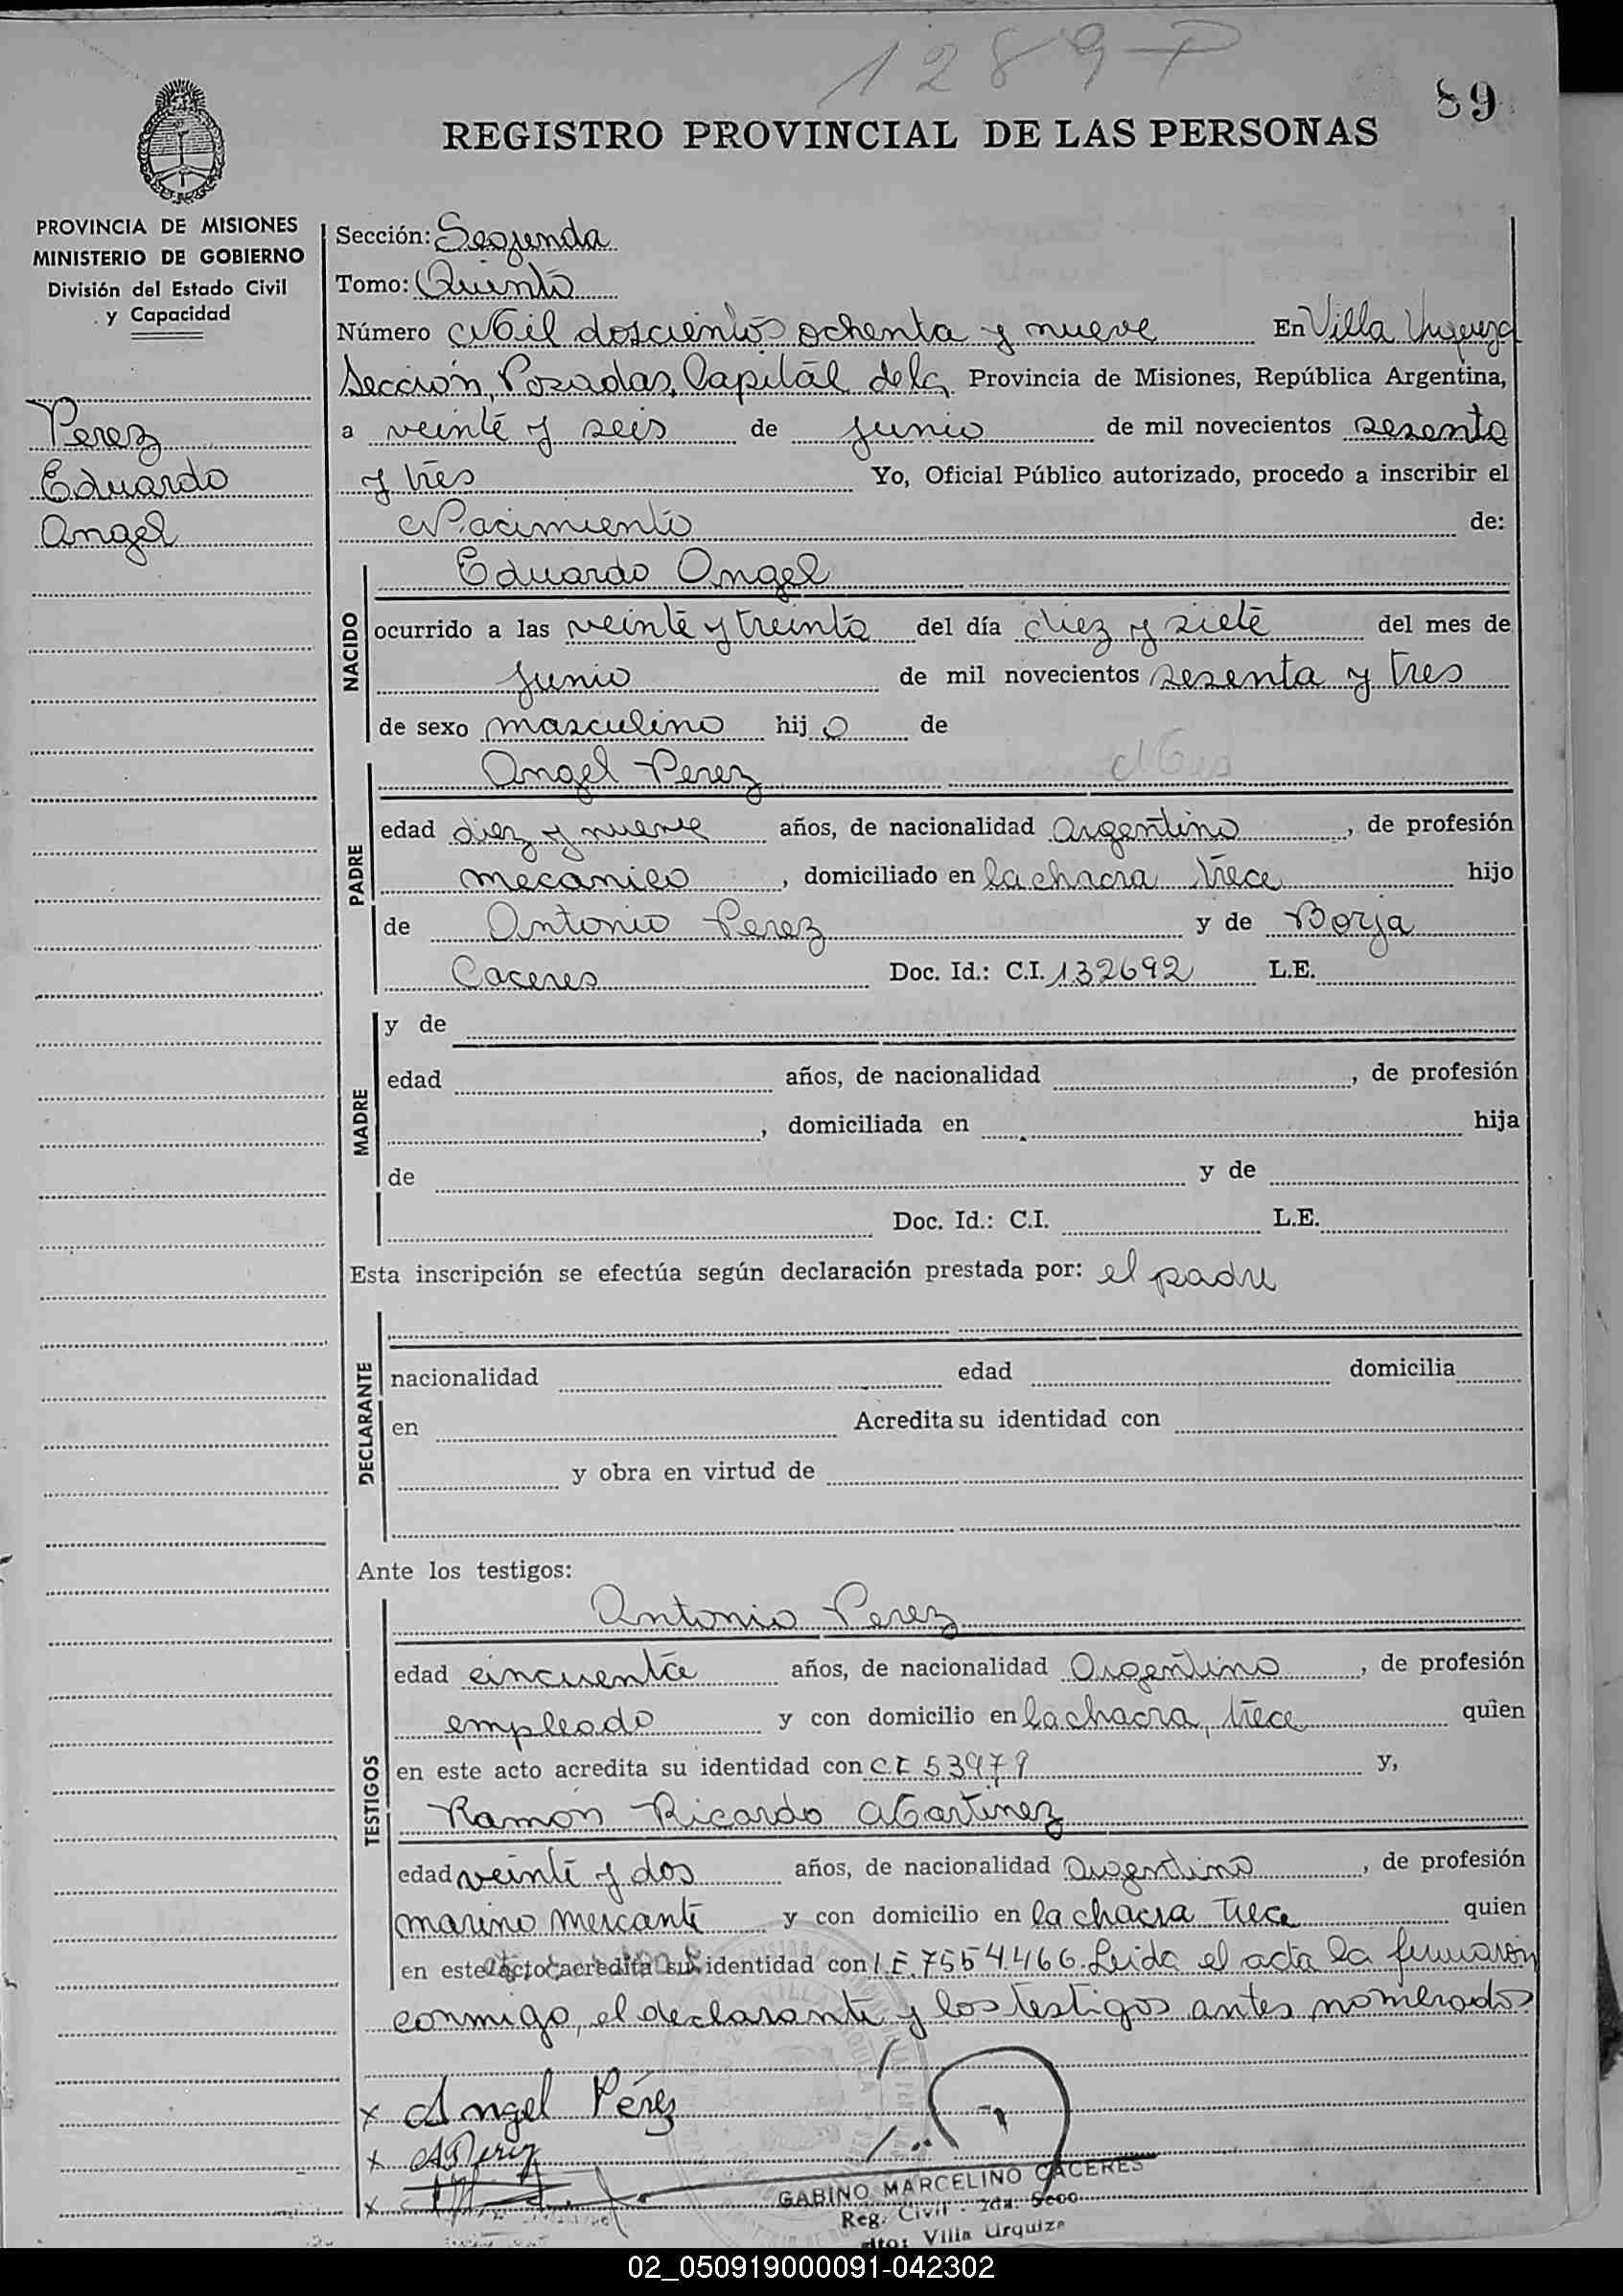 1289 P
89
REGISTRO PROVINCIAL DE LAS PERSONAS
PROVINCIA DE MISIONES
MINISTERIO DE GOBIERNO
División del Estado Civil
y Capacidad
Perez
Eduardo
Angel
Sección: Segunda
Tomo: Quinto
Número Mil doscientos ochenta y nueve En Villa Urquiza
Sección, Posadas, Capital de la Provincia de Misiones, República Argentina,
a veinte y seis de junio de mil novecientos sesenta
y tres Yo, Oficial Público autorizado, procedo a inscribir el
Nacimiento de:
NACIDO
Eduardo Angel
ocurrido a las veinte y treinta del día diez y siete del mes de
junio de mil novecientos sesenta y tres
de sexo masculino hij o de
PADRE
Angel Perez
edad diez y nueve años, de nacionalidad argentino, de profesión
mecanico, domiciliado en la chacra trece hijo
de Antonio Perez y de Borja
Caceres Doc. Id.: C.I. 132692 L.E.
MADRE
y de
edad años, de nacionalidad , de profesión
, domiciliada en hija
de y de
Doc. Id.: C.I. L.E.
Esta inscripción se efectúa según declaración prestada por: el padre
DECLARANTE
nacionalidad edad domicilia
en Acredita su identidad con
y obra en virtud de
Ante los testigos:
TESTIGOS
Antonio Perez
edad cincuenta años, de nacionalidad Argentino, de profesión
empleado y con domicilio en la chacra, trece quien
en este acto acredita su identidad con C.I 53979 y,
Ramón Ricardo Martinez
edad veinte y dos años, de nacionalidad argentino, de profesión
marino mercante y con domicilio en la chacra trece quien
en este acto acredita su identidad con L.E. 7554466. Leida el acta la firmaron
conmigo, el declarante y los testigos antes nombrados
x Angel Pérez
x A Perez
x
GABINO MARCELINO CACERES
Reg. Civil - 2da. Secc
dto: Villa Urquiza
02_050919000091-042302